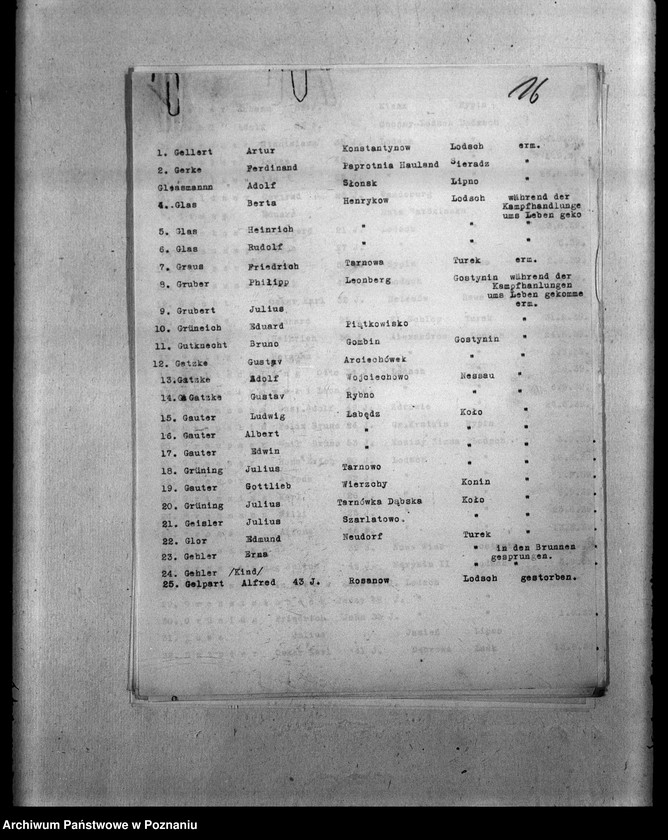 16
1. Gellert Artur Konstantynow Lodsch erm.
2. Gerke Ferdinand Paprotnia Hauland Sieradz "
Gleasmannn Adolf Słonsk Lipno "
4..Glas Berta Henrykow Lodsch während der
Kampfhandlunge
ums Leben geko
5. Glas Heinrich " " "
6. Glas Rudolf " " "
7. Graus Friedrich Tarnowa Turek erm.
8. Gruber Philipp Leonberg Gostynin während der
Kampfhanlungen
ums Leben gekomme
erm.
9. Grubert Julius
10. Grüneich Eduard Piątkowisko "
11. Gutknecht Bruno Gombin Gostynin "
12. Gatzke Gustav Arciechówek " "
13.Gatzke Adolf Wojciechowo Nessau "
14. Gatzke Gustav Rybno " "
15. Gauter Ludwig Łabędz Koło "
16. Gauter Albert " " "
17. Gauter Edwin " " "
18. Grüning Julius Tarnowo " "
19. Gauter Gottlieb Wierzchy Konin "
20. Grüning Julius Tarnówka Dąbska Koło "
21. Geisler Julius Szarlatowo. " "
22. Glor Edmund Neudorf Turek "
23. Gehler Erna " in den Brunnen
gesprungen.
24. Gehler /Kind/ " "
25. Gelpart Alfred 43 J. Rosanow Lodsch gestorben.
Archiwum Państwowe w Poznaniu